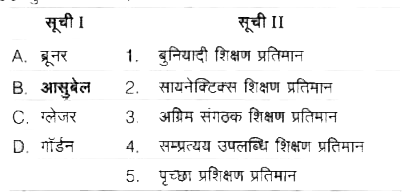 सूची I सूची II
A. ब्रूनर 1. बुनियादी शिक्षण प्रतिमान
B. आसुबेल 2. सायनेक्टिक्स शिक्षण प्रतिमान
C. ग्लेजर 3. अग्रिम संगठक शिक्षण प्रतिमान
D. गॉर्डन 4. सम्प्रत्यय उपलब्धि शिक्षण प्रतिमान
5. पृच्छा प्रशिक्षण प्रतिमान